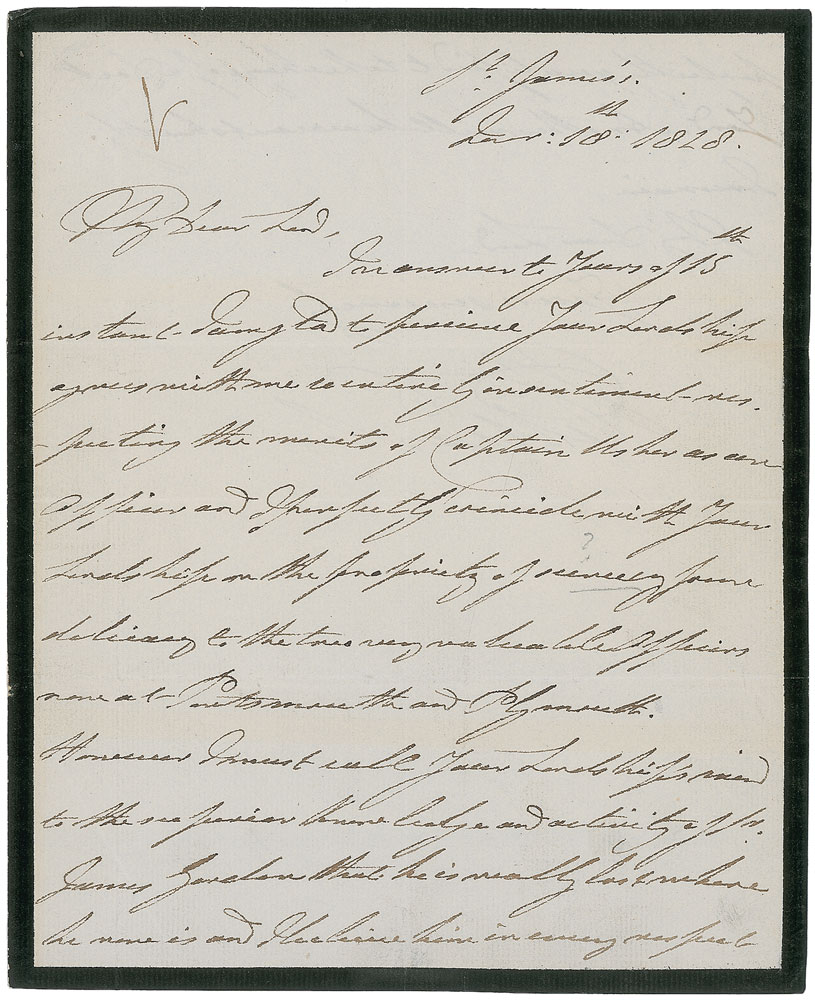 St. James's.
Decr: 18th: 1828.
My dear Lord,
In answer to Yours of 15th
instant I am glad to perceive Your Lordship
agrees with me so entirely in sentiment res-
-pecting the merits of Captain Usher as an
Officer and I perfectly coincide with Your
Lordship on the propriety of some
delicacy to the two very valuable Officers
now at Portsmouth and Plymouth.
However I must call Your Lordship's mind
to the superior knowledge and activity of Sr.
James Gordon that he is really lost where
he now is and I believe him in every respect